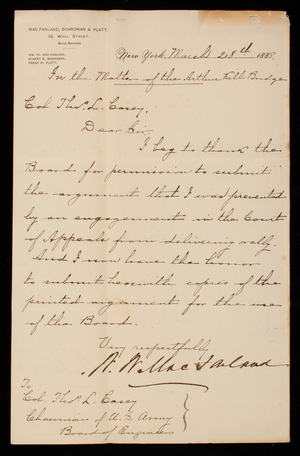 MAC FARLAND, BOARDMAN & PLATT,
35 WALL STREET,
WM. W. MAC FARLAND,
ALBERT B. BOARDMAN,
FRANK H. PLATT.
New York, March 28th 1888.
In the Matter of the Arthur Kill Bridge
Col Thos. L. Casey,
Dear Sir
I beg to thank the
Board for permission to submit
the argument that I was prevented
by an engagement in the Court
of Appeals from delivering orally.
And I now have the honor
to submit herewith copies of the
printed argument for the use
of the Board.
Very respectfully
W. W. Mac Farland
To
Col. Thos. L. Casey
Chairman of U.S. Army
Board of Engineers